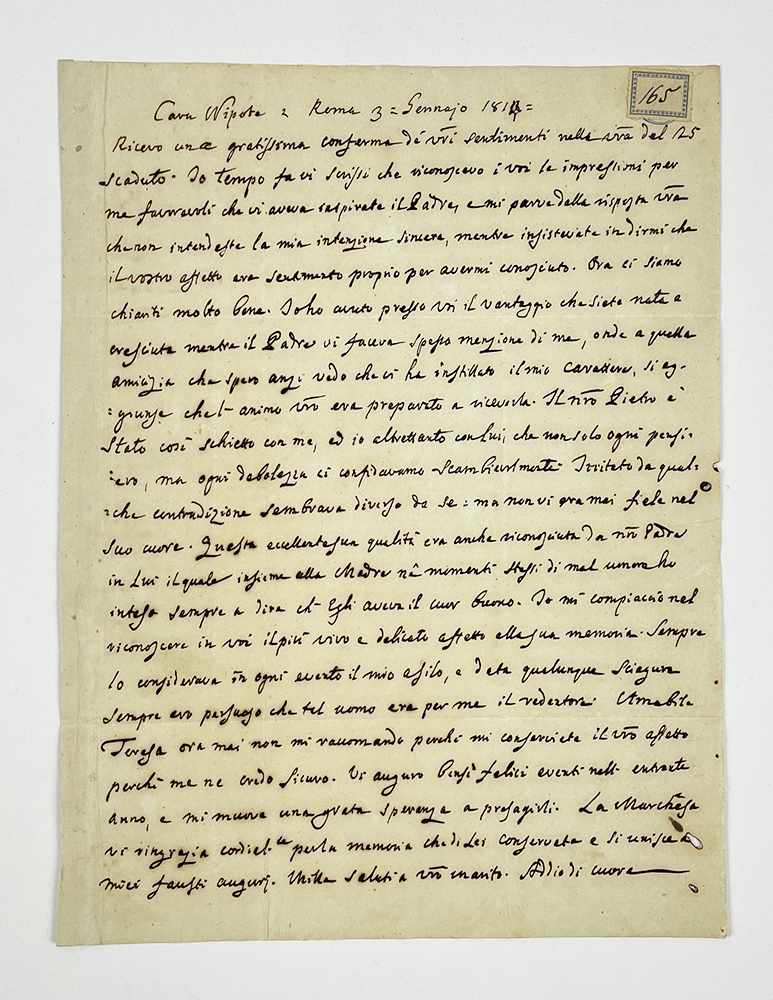 165
Cara Nipote = Roma 3 = Gennajo 181 =
Ricevo una gratissima conferma de' vr̃i sentimenti nella vr̃a del 25
scaduto. Io tempo fa vi scrissi che riconoscevo i voi le impressioni per
me favorevoli che vi aveva inspirate il Padre, e mi parve dalla risposta vr̃a
che non intendeste la mia intenzione sincera, mentre insistevate in dirmi che
il vostro affetto era sentimento proprio per avermi conosciuto. Ora ci siamo
chiariti molto bene. Io ho avuto presso voi il vantaggio che siete nata e
cresciuta mentre il Padre vi faceva spesso menzione di me, onde a quella
amicizia che spero anzi vedo che vi ha instillato il mio carattere, si ag-
=giunse che l'animo vr̃o era preparato a riceverla. Il nr̃o Pietro è
stato così schietto con me, ed io altrettanto con lui, che non solo ogni pensi-
=ero, ma ogni debolezza ci confidavamo scambievolmente. Irritato da qual-
=che contradizione sembrava diverso da se = ma non vi era mai fiele nel
suo cuore. Questa eccellente sua qualità era anche riconosciuta da nr̃o Padre
in Lui il quale insieme alla Madre nè momenti stessi di mal umore ho
inteso sempre a dire ch' Egli aveva il cuor buono. Io mi compiaccio nel
riconoscere in voi il più vivo e delicato affetto alla sua memoria. Sempre
lo considerava in ogni evento il mio asilo, e data qualunque sciagura
sempre ero persuaso che tal uomo era per me il redentore. Amabile
Teresa ora mai non mi raccomando perchè mi conserviate il vr̃o affetto
perchè me ne credo sicuro. Vi auguro bensì felici eventi nell' entrante
anno, e mi muove una grata speranza a presagirli. La Marchesa
vi ringrazia cordial.te per la memoria che di Lei conservate e si unisce a
miei fausti augurj. Mille saluti a vr̃o marito. Addio di cuore